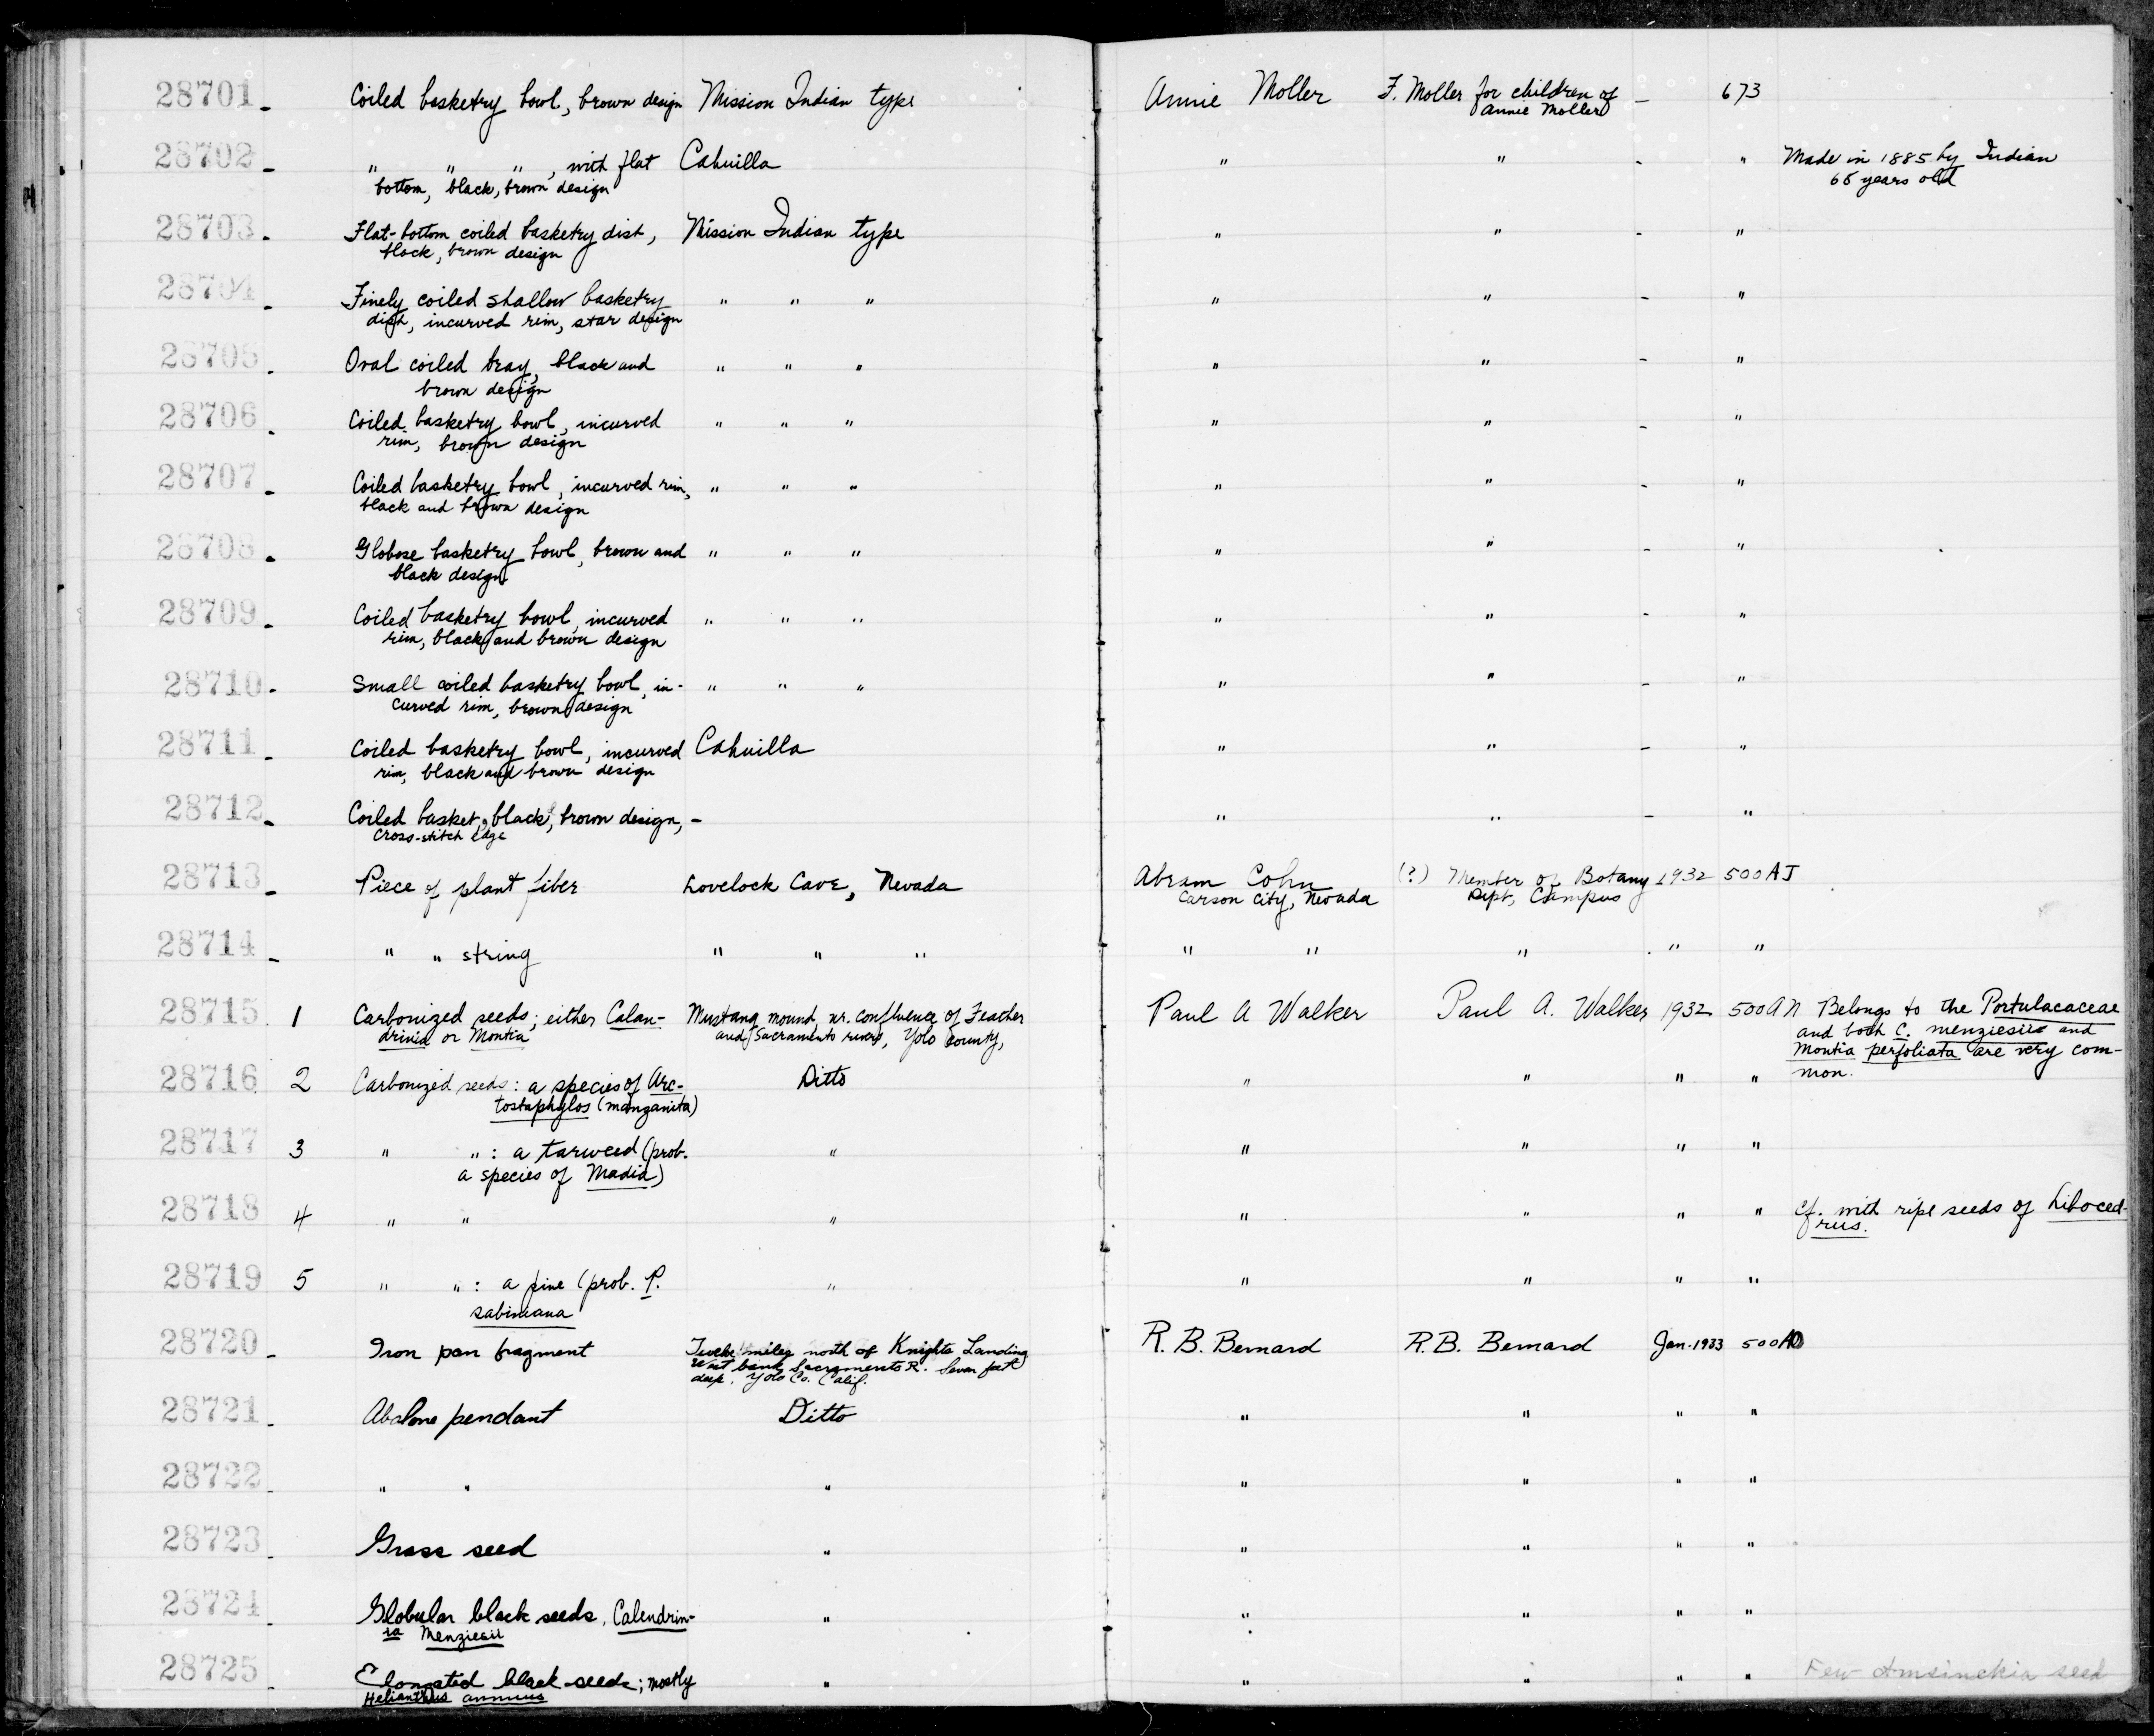 28701 - Coiled basketry bowl, brown design Mission Indian type Annie Moller F. Moller for children of - 673
Annie Moller
28702 - " " " , with flat Cahuilla " " - " Made in 1885 by Indian
bottom, black, brown design 65 years old
28703 - Flat-bottom coiled basketry dish, Mission Indian type " " - "
black, brown design
28704 - Finely coiled shallow basketry " " " " " - "
dish, incurved rim, star design
28705 - Oval coiled tray, black and " " " " " - "
brown design
28706 - Coiled basketry bowl, incurved " " " " " - "
rim, brown design
28707 - Coiled basketry bowl, incurved rim, " " " " " - "
black and brown design
28708 - Globose basketry bowl, brown and " " " " " - "
black design
28709 - Coiled basketry bowl, incurved " " " " " - "
rim, black and brown design
28710 - Small coiled basketry bowl, in- " " " " " - "
curved rim, brown design
28711 - Coiled basketry bowl, incurved Cahuilla " " - "
rim, black and brown design
28712 - Coiled basket, black, brown design, - " " - "
cross-stitch edge
28713 - Piece of plant fiber Lovelock Cave, Nevada Abram Cohn (?) Member of Botany 1932 500AJ
Carson City, Nevada Dept, Campus
28714 - " " string " " " " " " " "
28715 1 Carbonized seeds; either Calan- Mustang mound, nr. confluence of Feather Paul A Walker Paul A. Walker 1932 500AN Belongs to the Portulacaceae
drinia or Montia and Sacramento rivers, Yolo County, and both C. menziesii and
Montia perfoliata are very com-
28716 2 Carbonized seeds: a species of Arc- Ditto " " " " mon.
tostaphylos (manzanita)
28717 3 " " : a tarweed (prob. " " " " "
a species of Madia)
28718 4 " " " " " " " Cf. with ripe seeds of Liboced-
rus.
28719 5 " " : a pine (prob. P. " " " " "
sabiniana
28720 - Iron pan fragment Twelve miles north of Knights Landing R. B. Bernard R.B. Bernard Jan. 1933 500AO
West bank Sacramento R. Seven feet
deep. Yolo Co. Calif.
28721 - Abalone pendant Ditto " " " "
28722 - " " " " " " "
28723 - Grass seed " " " " "
28724 - Globular black seeds, Calendrin- " " " " "
ia Menziesii
28725 - Elongated black seeds; mostly " " " " " Few Amsinckia seed
Helianthus annuus